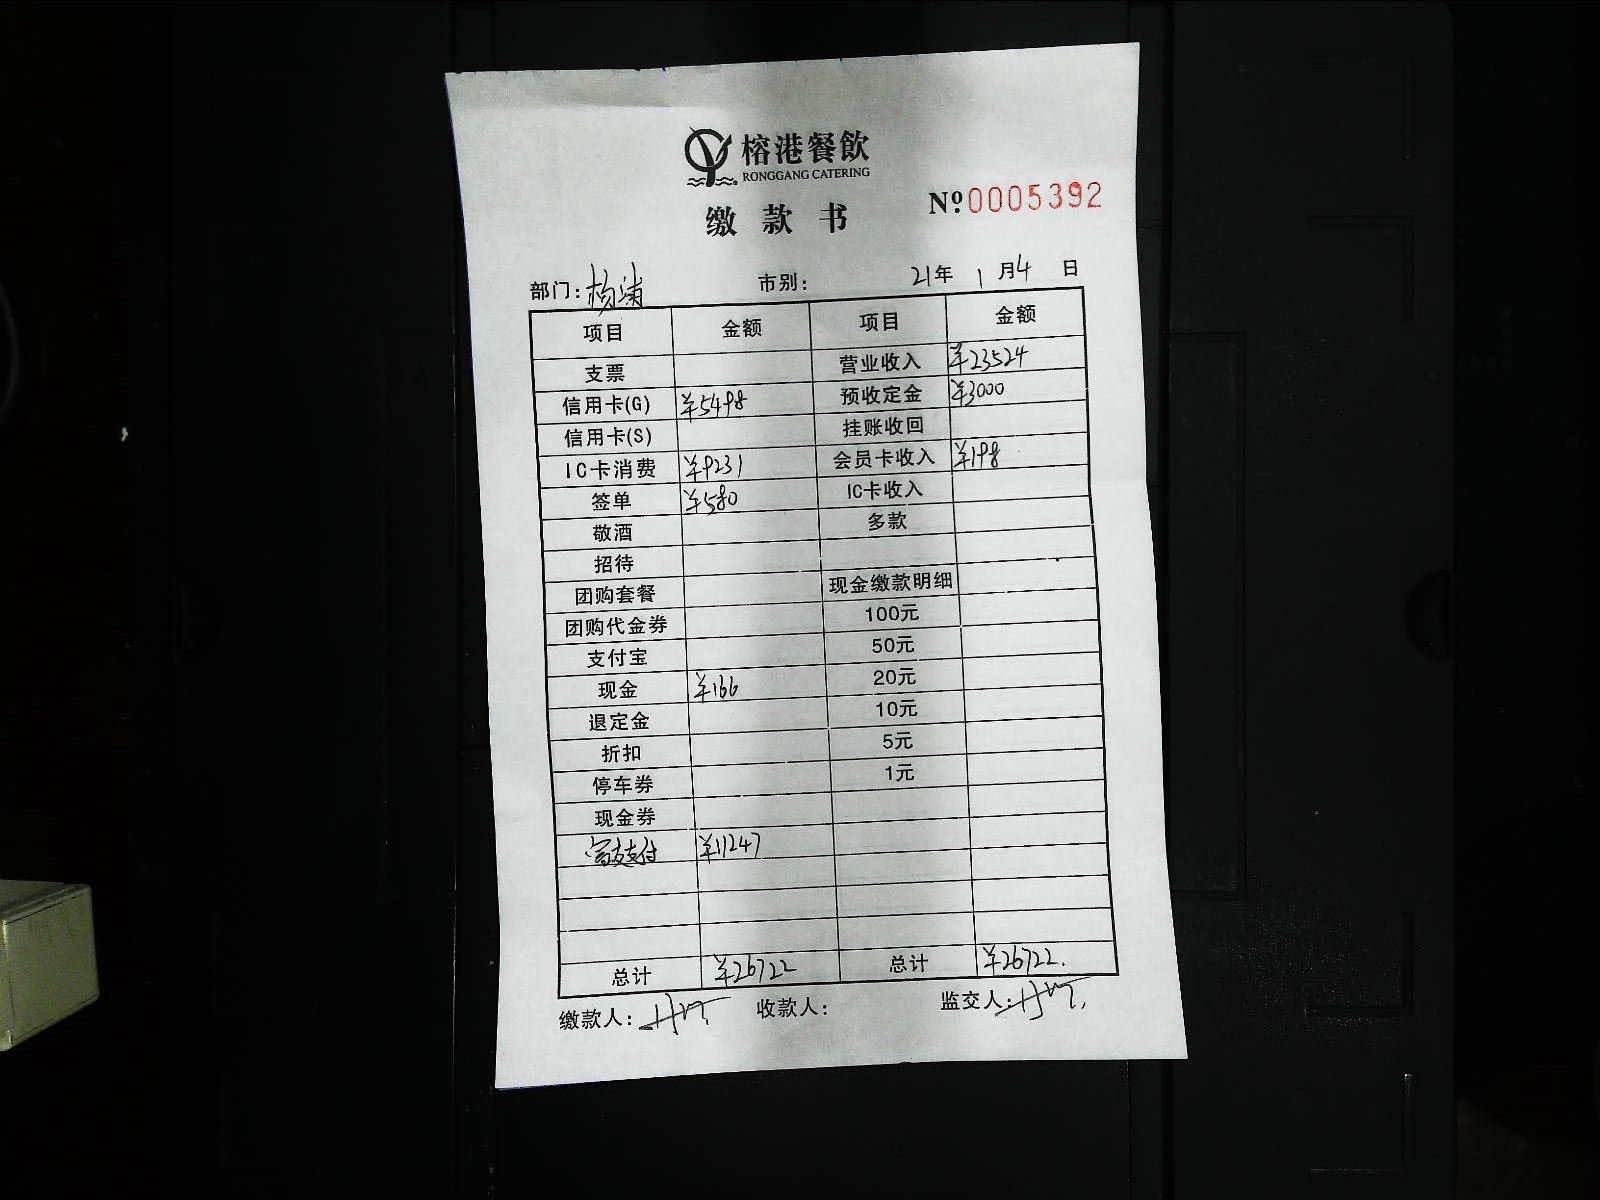 榕港餐飲
RONGGANG CATERING
缴款书
№0005392
部门：杨浦 市别： 21年 1月4日
项目 金额 项目 金额
支票 营业收入 ¥23524
信用卡(G) ¥5498 预收定金 ¥3000
信用卡(S) 挂账收回
IC卡消费 ¥9231 会员卡收入 ¥198
签单 ¥580 IC卡收入
敬酒 多款
招待
团购套餐 现金缴款明细
团购代金券 100元
支付宝 50元
现金 ¥166 20元
退定金 10元
折扣 5元
停车券 1元
现金券
支付 ¥11247
总计 ¥26722 总计 ¥26722.
缴款人： 收款人： 监交人：